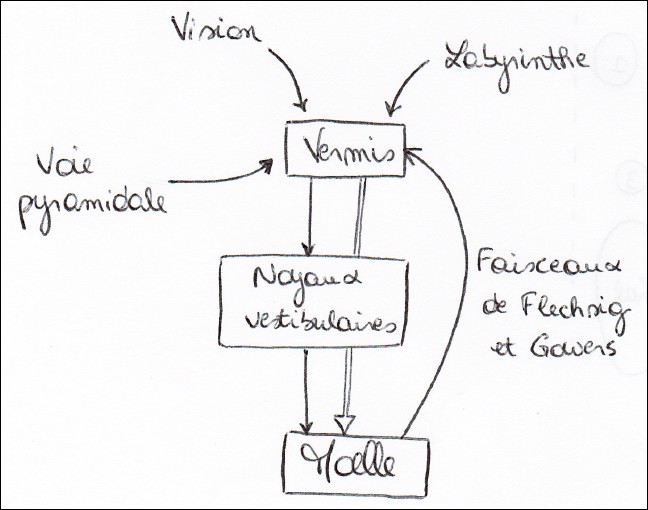 Vision
Labyrinthe
Vermis
Voie
pyramidale
Noyaux
vestibulaires
Faisceaux
de Flechsig
et Gowers
Moelle